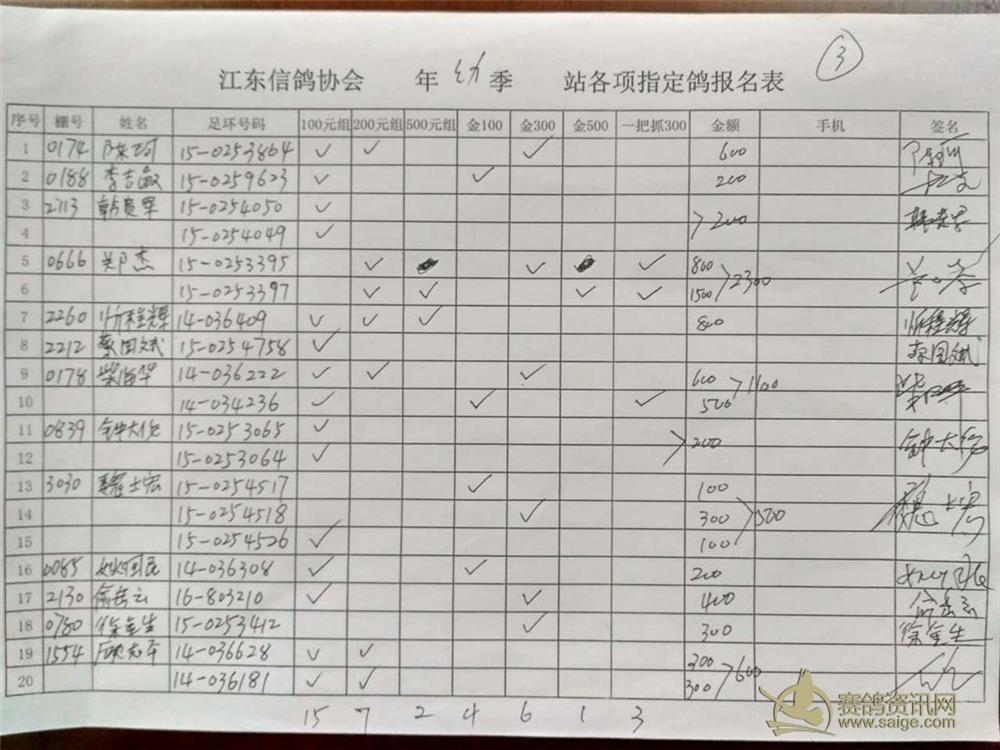 ③
江东信鸽协会 年 幼 季 站各项指定鸽报名表
序号 棚号 姓名 足环号码 100元组 200元组 500元组 金100 金300 金500 一把抓300 金额 手机 签名
1 0174 陈 15-0253864 ✓ ✓ ✓ 600
2 0188 李吉敏 15-0259623 ✓ ✓ 200
3 2113 韩贵军 15-0254050 ✓ >200
4 15-0254049 ✓
5 0666 郑杰 15-0253395 ✓ ✓ ✓ 800 >2300
6 15-0253397 ✓ ✓ ✓ ✓ 1500
7 2260 忻程辉 14-036409 ✓ ✓ ✓ 800 忻程辉
8 2212 蔡国斌 15-0254758 ✓ 蔡国斌
9 0178 柴海华 14-036222 ✓ ✓ ✓ 600 >1100
10 14-034236 ✓ ✓ ✓ 500
11 0839 钟大伦 15-0253065 ✓ >200 钟大伦
12 15-0253064 ✓
13 3030 士宏 15-0254517 ✓ 100
14 15-0254518 ✓ 300 >500
15 15-0254526 ✓ 100
16 0085 国民 14-036308 ✓ ✓ 200
17 2130 俞岳云 16-803210 ✓ ✓ 400 俞岳云
18 0780 徐金生 15-0253412 ✓ 300 徐金生
19 1554 14-036628 ✓ ✓ 300 >600
20 14-036181 ✓ ✓ 300
15 7 2 4 6 1 3
赛鸽资讯网
www.saige.com